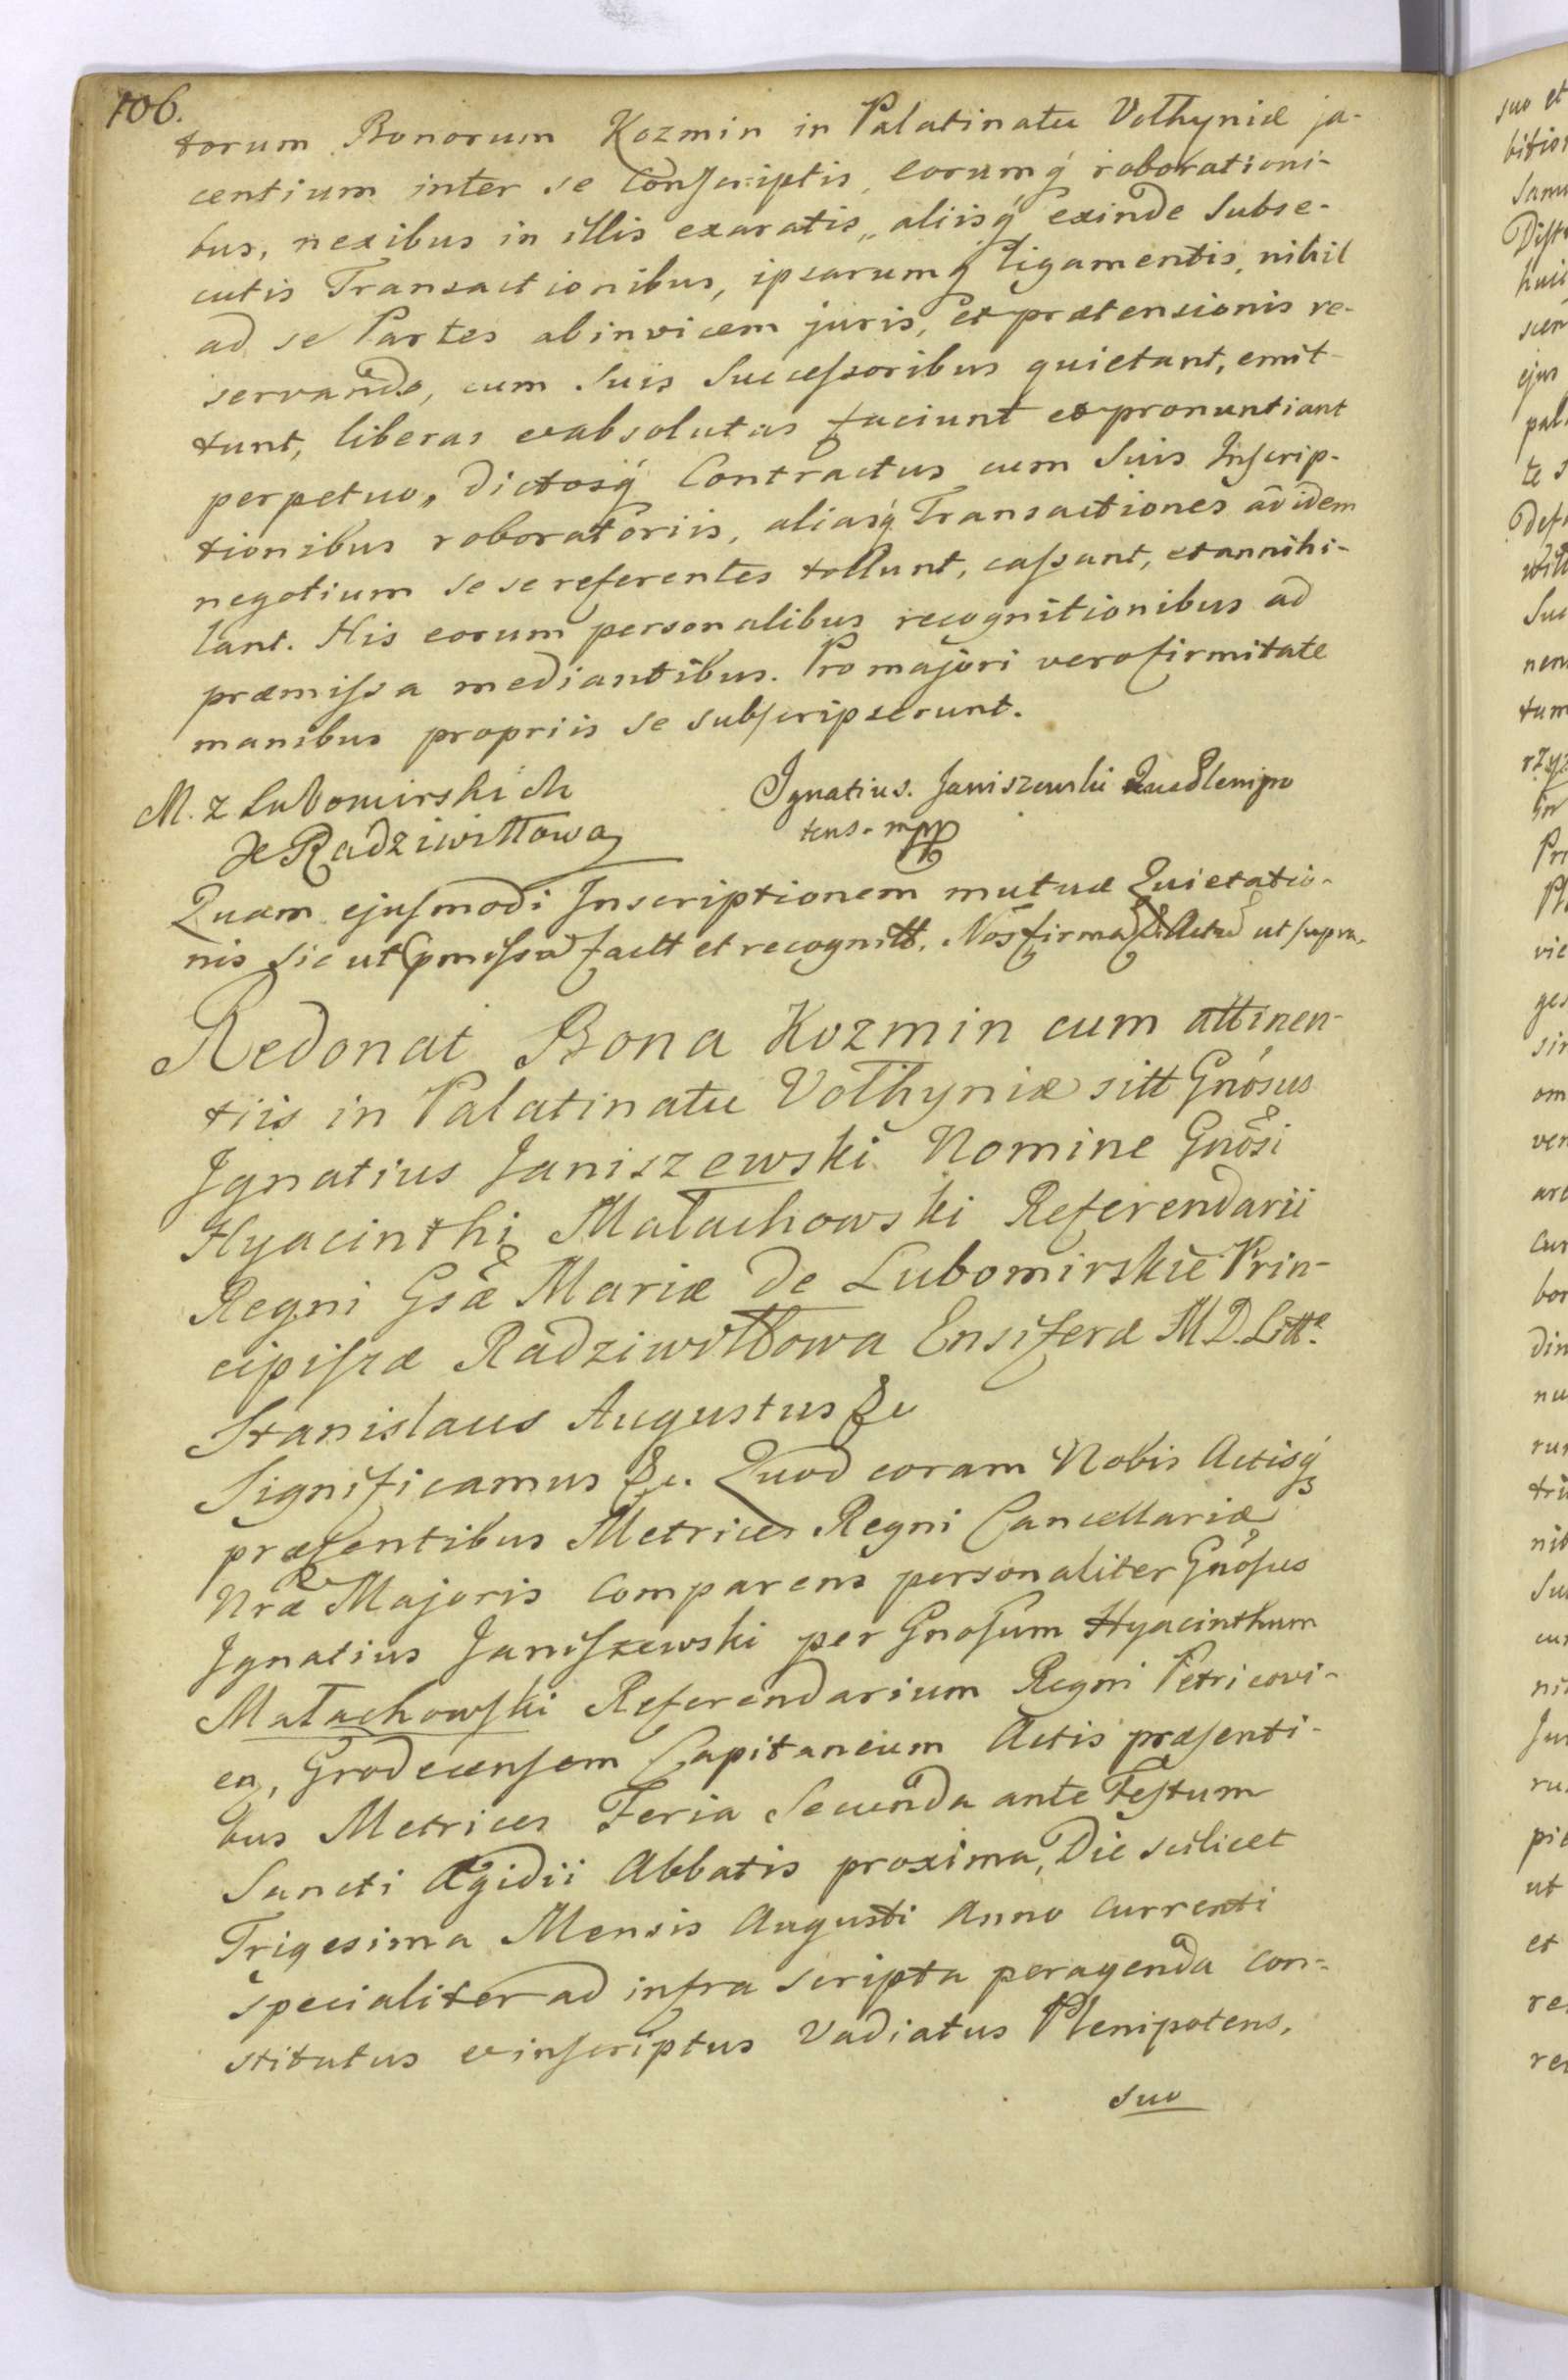 106.
torum Bonorum Kozmin in Palatinatu Volhyniæ ja-
centium inter se Conscriptis, eorumq́ roborationi-
bus, nexibus in illis exaratis, aliisq́ exinde Subse-
cutis Transactionibus, ipsarumq́ ligamentis, nihil
ad se Partes abinvicem juris, et prætensionis re-
servando, cum Suis Successoribus quietant, emit-
tunt, liberas et absolutas faciunt et pronuntiant
perpetuo, Dictosq́ Contractus cum Suis Inscrip-
tionibus roboratoriis, aliasq́ Transactiones ad idem
negotium se se referentes tollunt, cassant, et annihi-
lant. His eorum personalibus recognitionibus ad
præmissa mediantibus. Pro majori vero firmitate
manibus propriis se subscripserunt.
M. z Lubomirskich
X Radziwiłłowa
Ignatius. Janiszewski Plenipo
tens. mpp
Quam ejusmodi Inscriptionem mutuæ Quietatio-
nis Sic ut pmissa factt et recognitt. Nos firma Acta ut supra.
Redonat Bona Kozmin cum attinen-
tiis in Palatinatu Volhyniæ sitt Gnosus
Ignatius Janiszewski Nomine Gnosi
Hyacinthi Małachowski Referendarii
Regni Gsæ Mariæ de Lubomirskie Prin-
cipissæ Radziwiłłowa Ensiferæ M.D. Litt.
Stanislaus Augustus &c
Significamus &c. Quod coram Nobis Actisq́
præsentibus Metrices Regni Cancellariæ
Nræ Majoris Comparens personaliter Gnosus
Ignatius Janiszewski per Gnosum Hyacinthum
Małachowski Referendarium Regni Petricovi-
en, Grodecensem Capitaneum Actis præsenti-
bus Metrices Feria Secunda ante Festum
Sancti Ægidii Abbatis proxima, Die scilicet
Trigesima Mensis Augusti Anno Currenti
specialiter ad infra scripta peragenda con-
stitutus et inscriptus Vadiatus Plenipotens,
suo